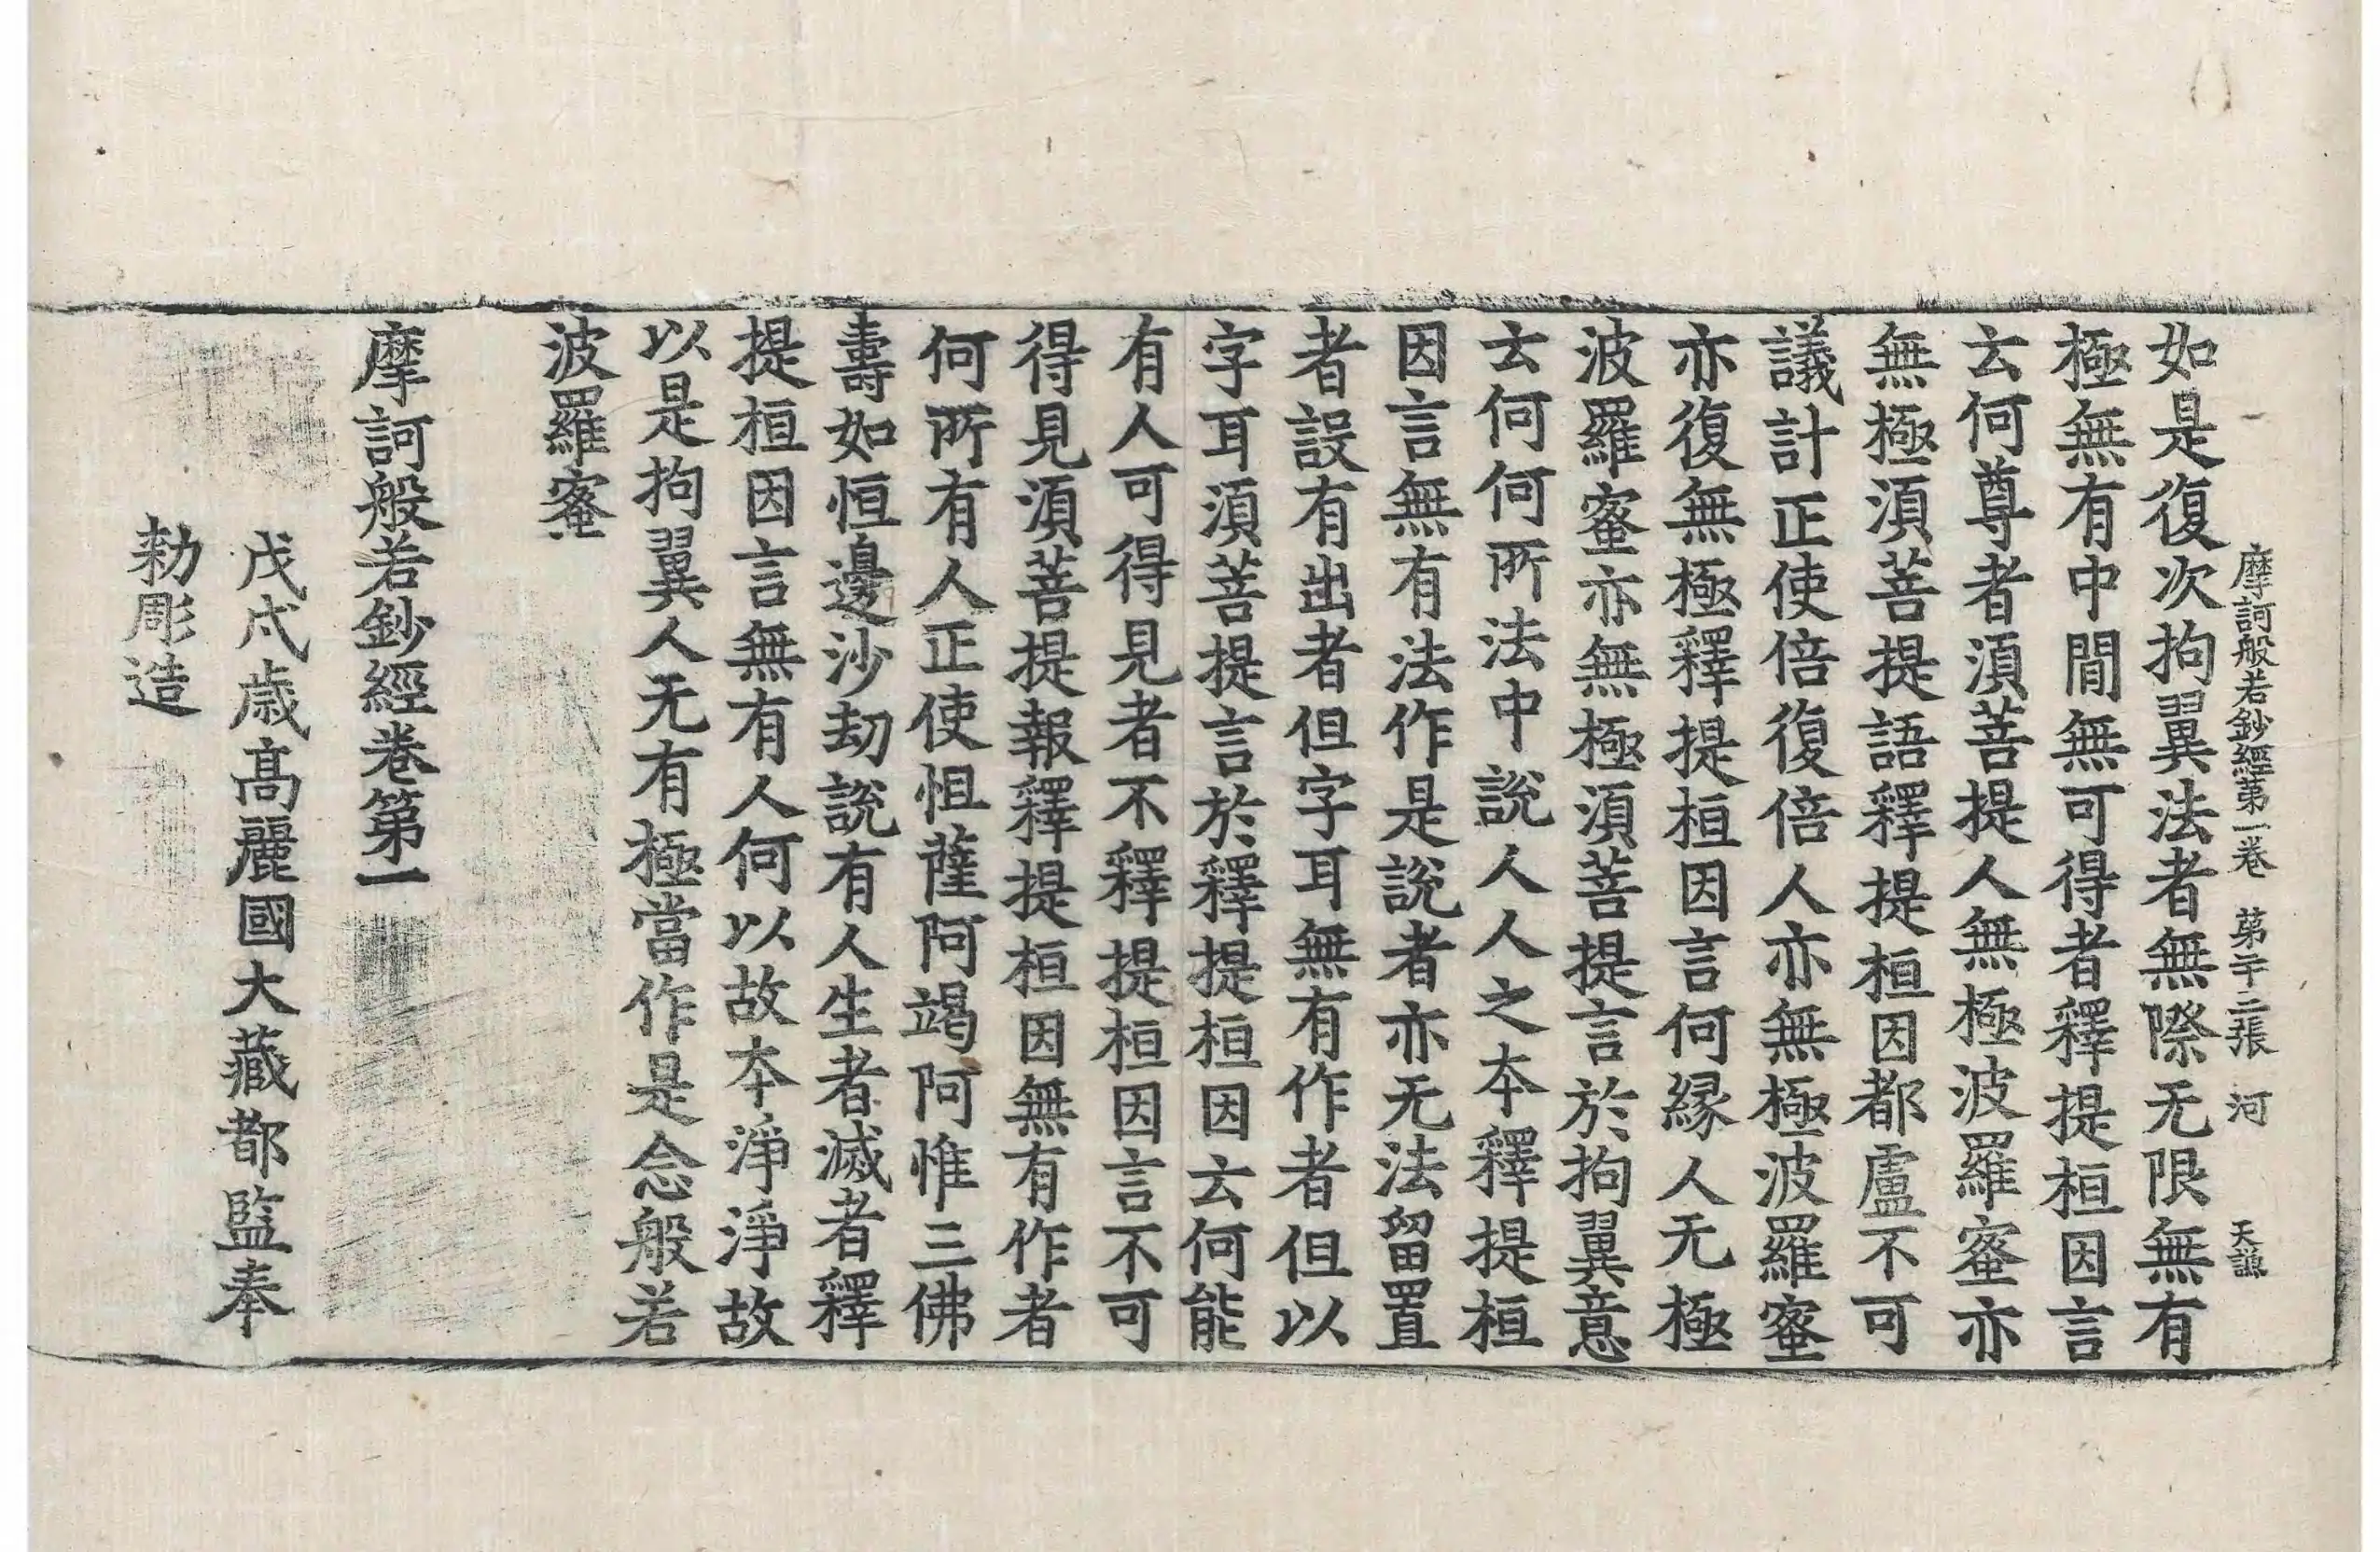 摩訶般若鈔經第一卷 第二十二張 河 天謙
如是復次拘翼法者無際无限無有
極無有中間無可得者釋提桓因言
云何尊者湏菩提人無極波羅蜜亦
無極湏菩提語釋提桓因都盧不可
議計正使倍復倍人亦無極波羅蜜
亦復無極釋提桓因言何縁人无極
波羅蜜亦無極湏菩提言於拘翼意
云何何所法中說人人之夲釋提桓
因言無有法作是說者亦无法留置
者設有出者但字耳無有作者但以
字耳湏菩提言於釋提桓因云何能
有人可得見者不釋提桓因言不可
得見湏菩提報釋提桓因無有作者
何所有人正使怛薩阿竭阿惟三佛
壽如恒邊沙劫說有人生者滅者釋
提桓因言無有人何以故夲淨淨故
以是拘翼人无有極當作是念般若
波羅蜜
摩訶般若鈔經卷第一
戊戌歳高麗國大藏都監奉
勑彫造